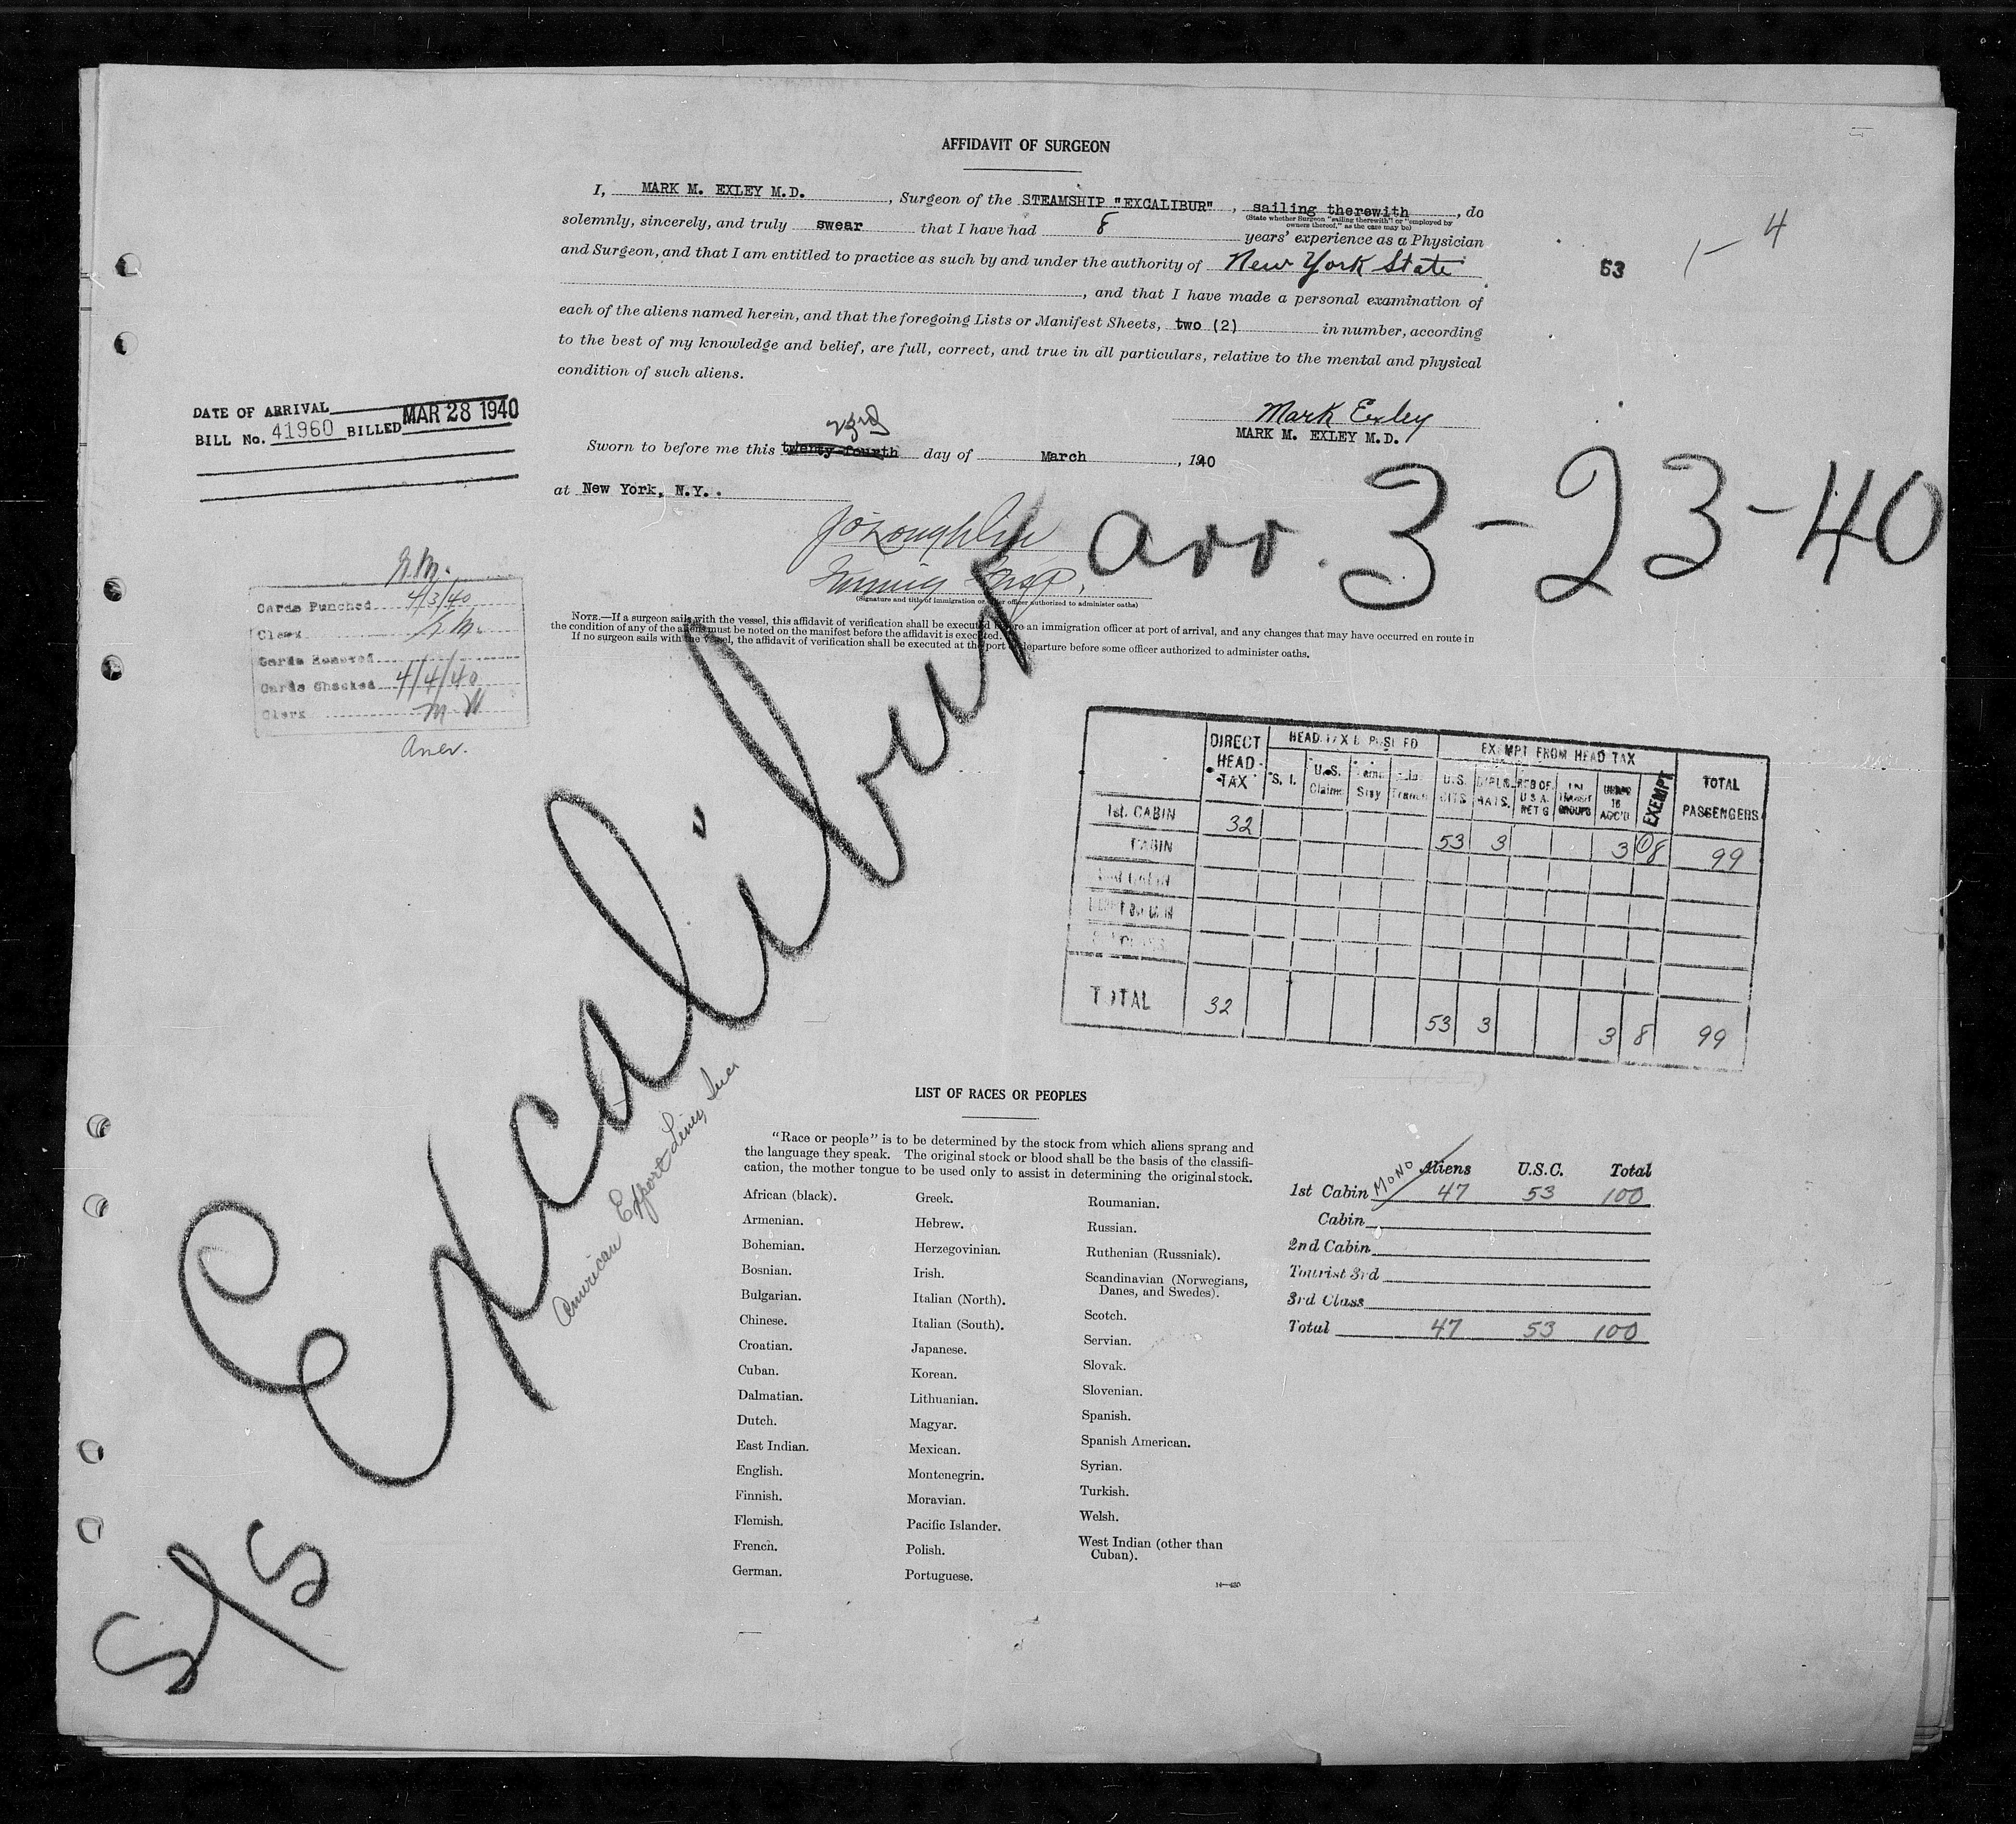 AFFIDAVIT OF SURGEON
I, MARK M. EXLEY M.D., Surgeon of the STEAMSHIP "EXCALIBUR", sailing therewith, do
(State whether Surgeon "sailing therewith" or "employed by
owners thereof," as the case may be)
solemnly, sincerely, and truly swear that I have had 8 years' experience as a Physician
and Surgeon, and that I am entitled to practice as such by and under the authority of New York State
, and that I have made a personal examination of
each of the aliens named herein, and that the foregoing Lists or Manifest Sheets, two (2) in number, according
to the best of my knowledge and belief, are full, correct, and true in all particulars, relative to the mental and physical
condition of such aliens.
53 1- 4
DATE OF ARRIVAL
BILL No. 41960 BILLED MAR 28 1940
Mark Exley
MARK M. EXLEY M.D.
23rd
Sworn to before me this twenty-fourth day of March, 1940
at New York, N.Y.
arr. 3-23-40
J O'Loughlin
Immig Insp.
(Signature and title of immigration or other officer authorized to administer oaths)
NOTE.—If a surgeon sails with the vessel, this affidavit of verification shall be executed before an immigration officer at port of arrival, and any changes that may have occurred en route in
the condition of any of the aliens must be noted on the manifest before the affidavit is executed.
If no surgeon sails with the vessel, the affidavit of verification shall be executed at the port of departure before some officer authorized to administer oaths.
Cards Punched 4/3/40
Clerk
Cards Removed
Cards Checked 4/4/40
Clerk
S/S Excalibur
American Export Lines, Inc.
DIRECT HEAD TAX
EXEMPT FROM HEAD TAX
TOTAL PASSENGERS
S. I. U.S. Claims U.S. CITS IN TRANSIT GROUPS UNDER 16 ACC'D EXEMPT
1st. CABIN 32
CABIN 53 3 3 8 99
TOTAL 32 53 3 3 8 99
LIST OF RACES OR PEOPLES
"Race or people" is to be determined by the stock from which aliens sprang and
the language they speak. The original stock or blood shall be the basis of the classifi-
cation, the mother tongue to be used only to assist in determining the original stock.
African (black).
Armenian.
Bohemian.
Bosnian.
Bulgarian.
Chinese.
Croatian.
Cuban.
Dalmatian.
Dutch.
East Indian.
English.
Finnish.
Flemish.
French.
German.
Greek.
Hebrew.
Herzegovinian.
Irish.
Italian (North).
Italian (South).
Japanese.
Korean.
Lithuanian.
Magyar.
Mexican.
Montenegrin.
Moravian.
Pacific Islander.
Polish.
Portuguese.
Roumanian.
Russian.
Ruthenian (Russniak).
Scandinavian (Norwegians,
Danes, and Swedes).
Scotch.
Servian.
Slovak.
Slovenian.
Spanish.
Spanish American.
Syrian.
Turkish.
Welsh.
West Indian (other than
Cuban).
Aliens U.S.C. Total
1st Cabin MONO 47 53 100
Cabin
2nd Cabin
Tourist 3rd
3rd Class
Total 47 53 100